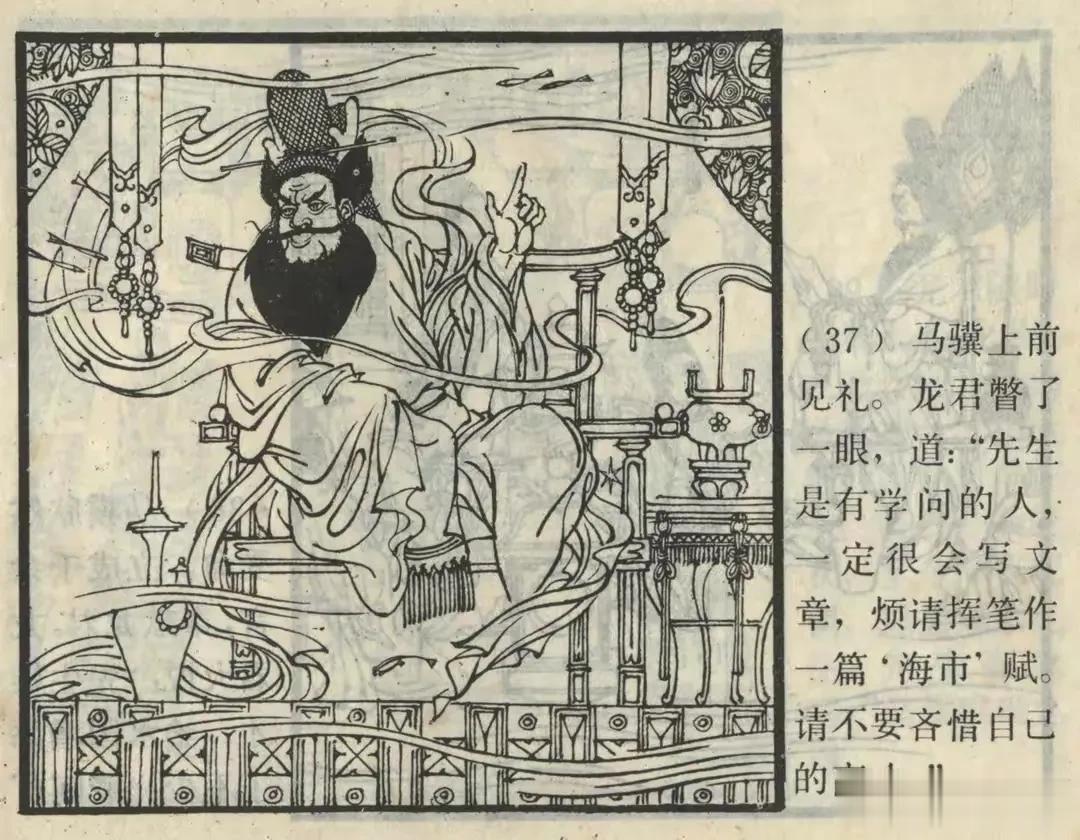 （37）马骥上前
见礼。龙君瞥了
一眼，道：“先生
是有学问的人，
一定很会写文
章，烦请挥笔作
一篇‘海市’赋。
请不要吝惜自己
的